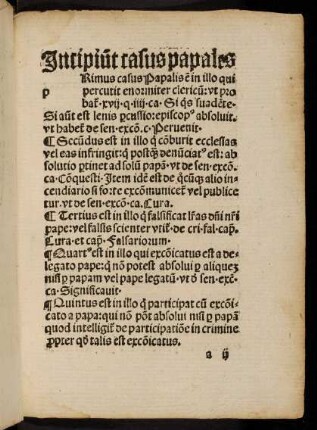 Incipiũt casus papales
p Rimus casus Papalis ẽ in illo qui
percutit enormiter clericũ: vt pro
bat᷑ .xvij. q. iiij. ca. Si q̃s suadẽte.
Si aũt est lenis ꝑcussio: episcop⁹ absoluit.
vt habet᷑ de sen. excõ. c. Peruenit.
¶ Secũdus est in illo q̃ cõburit ecclesias
vel eas infringit: q̃ postq̃ denũciat⁹ est: ab
solutio ꝑtinet ad solũ papã. vt de sen. excõ.
ca. Cõquesti. Item idẽ est de q̃cũq̃ alio in
cendiario si forte excõmunicet᷑ vel publice
tur. vt de sen. excõ. ca. Tura.
¶ Tertius est in illo q̃ falsificat lr̃as dñi nr̃i
pape: vel falsis scienter vtit᷑. de cri. fal. cap̃.
Tura et cap̃. Falsariorum.
¶ Quart⁹ est in illo qui excõicatus est a de
legato pape: q̃ nõ potest absolui ꝑ aliquẽ
nisi ꝑ papam vel pape legatũ. vt õ sen. exẽ
ca. Significauit.
¶ Quintus est in illo q̃ participat cũ excõi
cato a papa: qui nõ põt absolui nisi ꝑ papã
quod intelligit᷑ de participatiõe in crimine
ꝓpter qð talis est excõicatus.
a ij